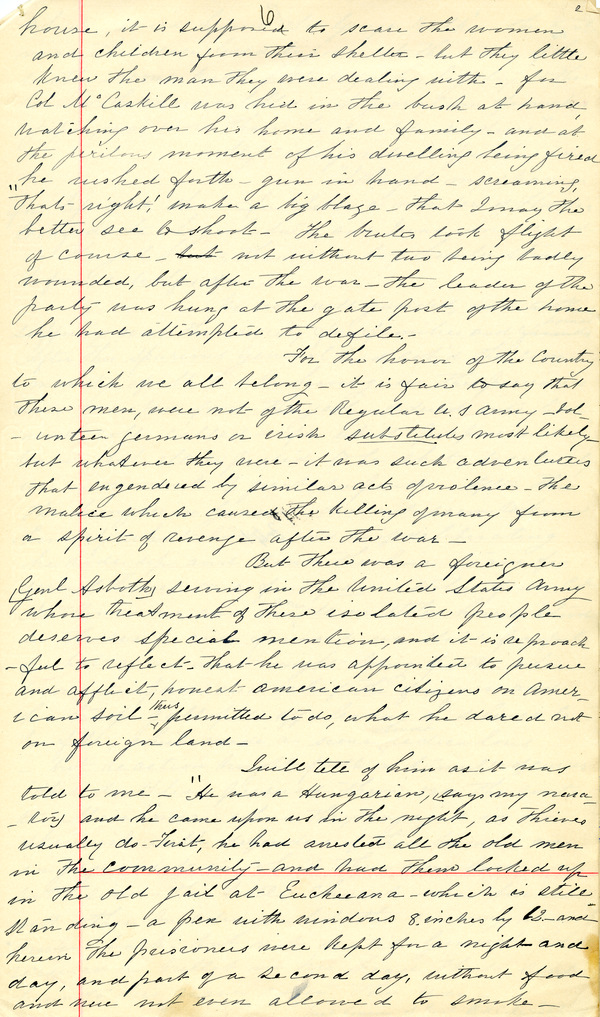 6
2
house, it is supposed to scare the women
and children from their shelter - but they little
knew the man they were dealing with - for
Col McCaskill was hid in the bush at hand,
watching over his home and family - and at
the perilous moment of his dwelling being fired
he rushed forth - gun in hand - screaming,
"thats right! make a big blaze - that I may the
better see to shoot - The brutes took flight
of course - but not without two being badly
wounded, but after the war - the leader of the
party was hung at the gate post of the home
he had attempted to defile. -
For the honor of the Country
to which we all belong - it is fair to say that
these men, were not of the Regular U. S Army - Vol-
- unteer germans or irish substitutes most likely -
but whatever they were - it was such adventures
that engendered by similar acts of violence - the
malice which caused the killing of many from
a spirit of revenge after the war -
But there was a foreigner
(Genl Asboth) serving in the United States Army
whose treatment of these isolated people
deserves special mention, and it is reproach
- ful to reflect - that he was appointed to pursue
and afflict, honest american citizens on Amer-
ican soil - thus permitted to do, what he dared not
on foreign land -
I will tell of him as it was
told to me - "He was a Hungarian, (says my narra-
- tor) and he came upon us in the night, as thieves
usually do - First, he had arrested all the old men
in the community - and had them locked up
in the old jail at Eucheeana - which is still
standing - a pen with windows 8 inches by 12 - and
herein the prisoners were kept for a night and
day, and part of a second day, without food
and were not even allowed to smoke -